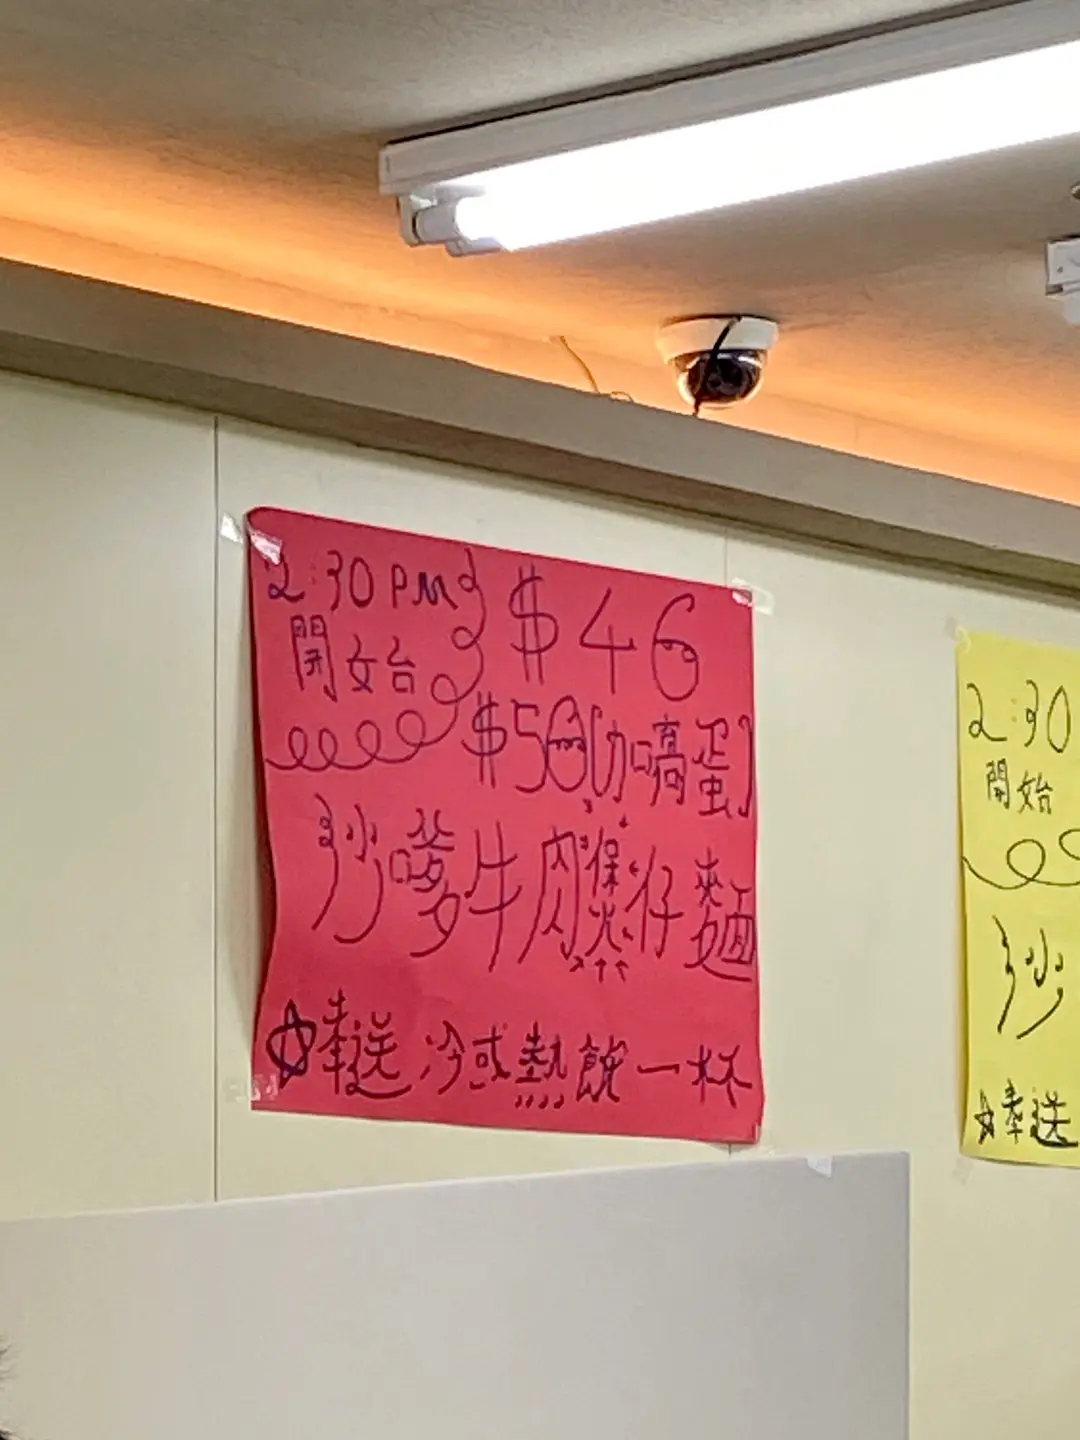 2:30PM
開始
$46
$50(加嗃蛋)
沙嗲牛肉煲仔麵
☆奉送冷或熱飲一杯
2:30
開始
沙
☆奉送